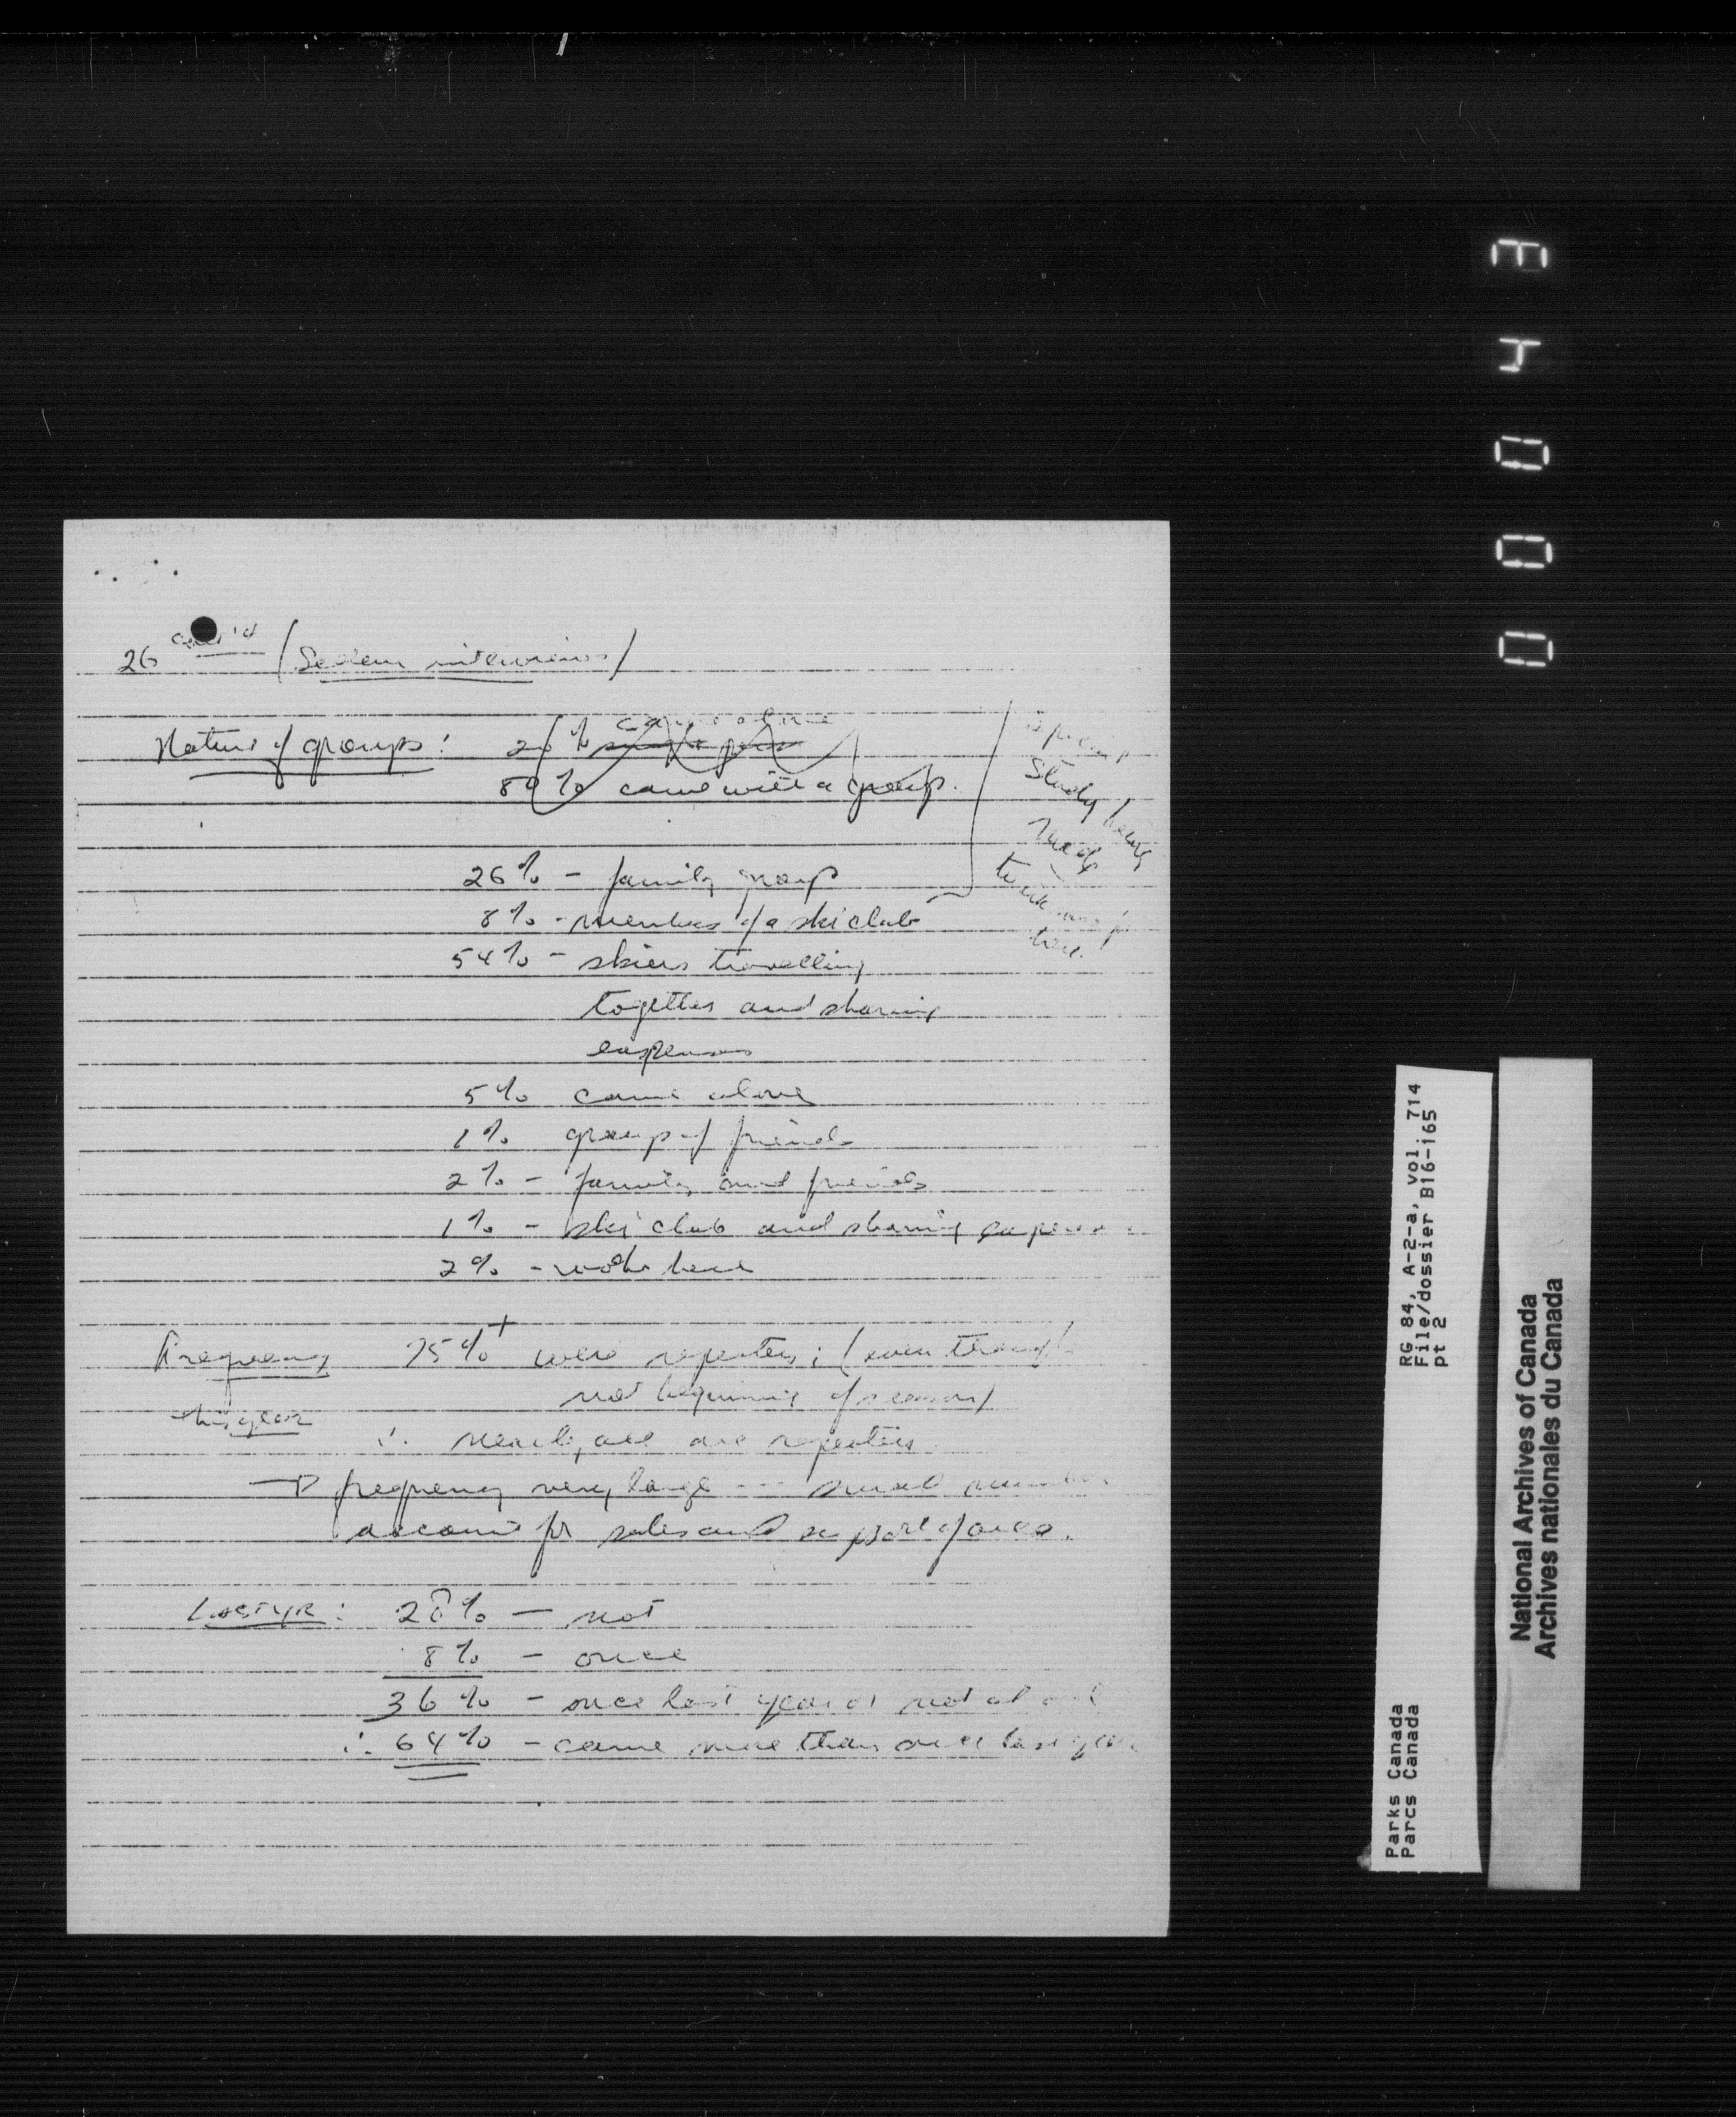 26 cont'd (Skiers interviews)
Nature of groups: 20% came alone
80% came with a group.
study being
made
here.
26% - family group
8% - members of a ski club
54% - skiers travelling
together and sharing
expenses
5% came alone
1% group of friends
2% - family and friends
1% - ski club and sharing expenses
2% - work here
Frequency 75%+ were repeaters; (even though
not beginning of season)
this year
∴ nearly all are repeaters
→ frequency very large -- small number
account for sales and support of area.
Last yr: 28% - not
8% - once
36% - once last year or not at all
∴ 64% - came more than once last year
00043
RG 84, A-2-a, vol. 714
File/dossier B16-165
pt 2
Parks Canada
Parcs Canada
National Archives of Canada
Archives nationales du Canada